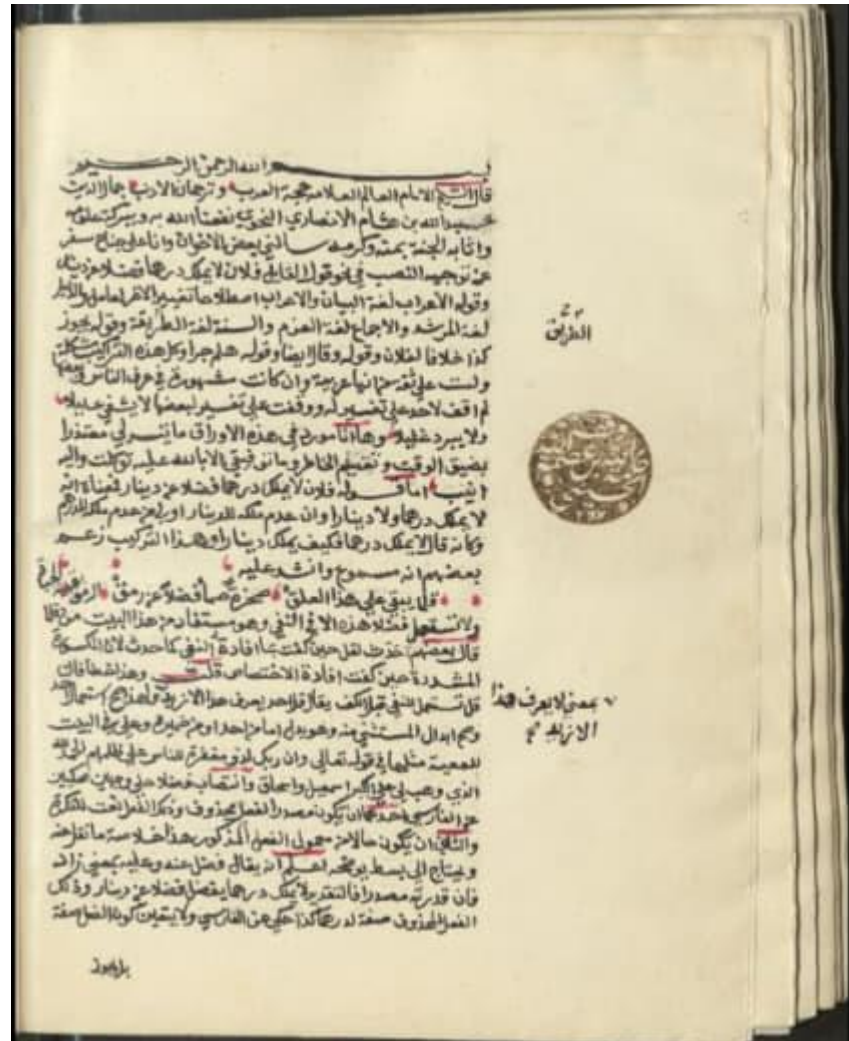 بسم الله الرحمن الرحيم
قال الشيخ الامام العالم العلامه حجة العرب وترجمان الادب جمال الدين
عبدالله بن هشام الانصاري النحوي نفعنا الله به وببركة علومه
واثابه الجنة بمنه وكرمه سالني بعض الاخوان وانا على جناح سفر
عن توجيه النصب في نحو قول القايل فلان لا يملك درهما فضلا عن دينار
وقوله الاعراب لغة البيان والاعراب اصطلاحا تغيير الاخر لعامل والدليل
لغة المرشد والاجماع لغة العزم والسنة لغة الطريقة وقوله يجوز
كذا خلافا لفلان وقوله وقال ايضا وقوله هلم جرا وكل هذه التراكيب مشكلة
ولست على ثقة من انها عربية وان كانت مشهورة في عرف الناس وبعضها
لم اقف لاحد على تفسير له ووقفت على تفسير لبعضها لا يشفي عليلا
ولا يبرد غليلا وها انا مورد في هذه الاوراق ما تيسر لي معتذرا
بضيق الوقت وتقسيم الخاطر وما توفيقي الا بالله عليه توكلت واليه
انيب اما قوله فلان لا يملك درهما فضلا عن دينار فمعناه انه
لا يملك درهما ولا دينارا وان عدم ملكه للدينار اولى من عدم ملكه للدرهم
وكانه قال لا يملك درهما فكيف يملك دينارا وهذا التركيب زعم
بعضهم انه مسموع وانشد عليه
قل ما يبقى على هذا العلق صخرة صما فضلا عن رمق
ولا تستعمل فضلا هذه الا في النفي وهو مستفاد من هذا البيت من
قال بعضهم حدث لقل حين كفت بما افادة النفي كما حدث لان المكسورة
المشددة حين كفت افادة الاختصاص قلت وهذا خطا فان
قل تستعمل للنفي قبل الكف يقال قل احد يعرف هذا الا زيد ولهذا صح استعمال
وصح ابدال المستثنى منه وهو بدل اما من احد او من ضميره وعلى في البيت
للمعية مثلها في قوله تعالى وان ربك لذو مغفرة للناس على ظلمهم الحمد لله
الذي وهب لي على الكبر اسمعيل واسحاق وانتصاب فضلا على وجهين محكيين
عن الفارسي احدهما ان يكون مصدرا لفعل محذوف وذلك الفعل نعت للنكرة
والثاني ان يكون حالا من معمول الفعل المذكور هذا خلاصة ما نقل عنه
ويحتاج الى بسط يوضحه اعلم انه يقال فضل عنه وعليه بمعنى زاد
فان قدرته مصدرا فالتقدير لا يملك درهما يفضل فضلا عن دينار وذلك
الفعل المحذوف صفة لدرهما كذا حكي عن الفارسي ولا يتعين كون الفعل صفة
بل يجوز
الطريق
بمعنى لا يعرف هذا
الا زيد صح